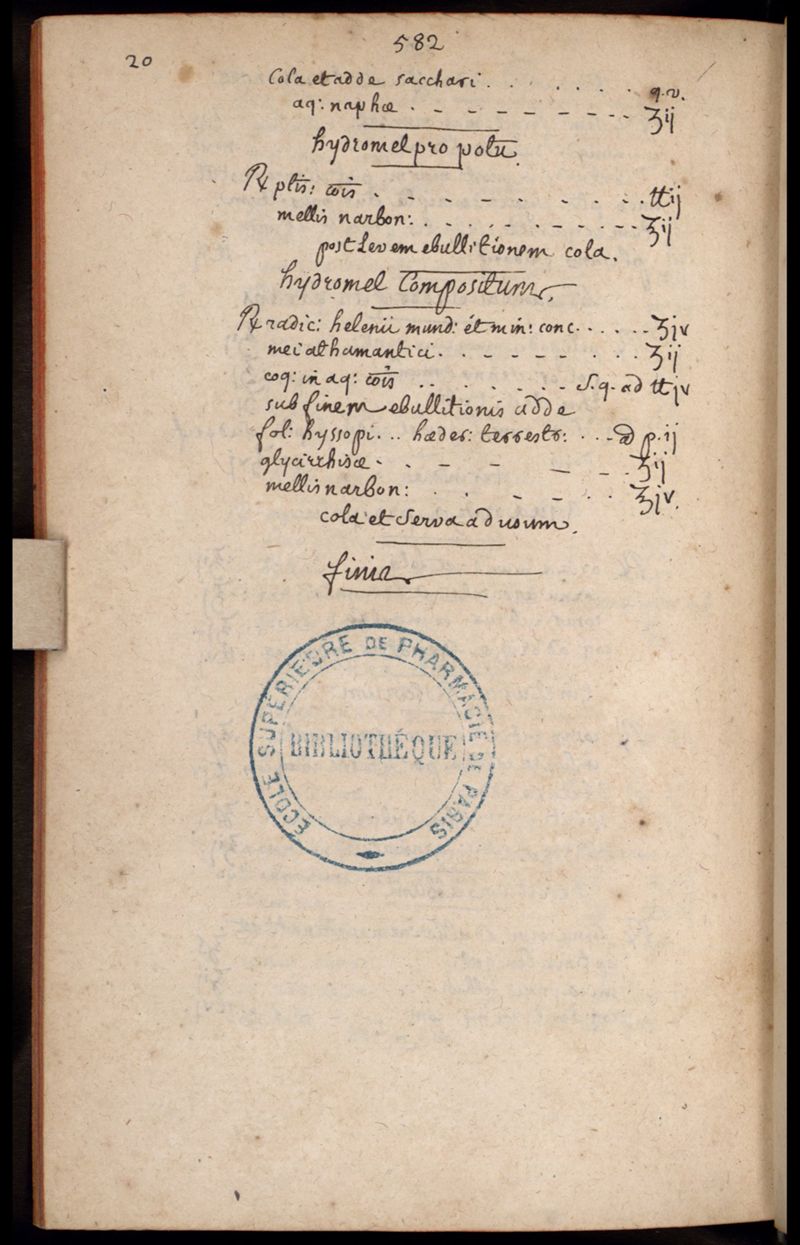 582
20
Cola et adde sacchari . . . . . . q.v.
aq: naphæ . - - - - - - . . ʒij
hydromel pro potu.
℞ ptis: cõis . - - - - - . . ℔ij
mellis narbon: . . - . - . - - - ʒij
post levem ebullitionem cola.
hydromel Compositum
℞ radic: helenii mund: et min: conc . . . . . ʒjv
mei athamantici . . - - - . . . ʒij
coq: in aq: cõis . . - . - . - S.q. ad ℔jv
sub finem ebullitionis adde
fol: hyssopi . . hæder: terrestr: . . . ā p.ij
glycirrhisæ . . - - - - . ʒij
mellis narbon: . . - - . . ʒjv.
cola et Serva ad usum.
finis
ÉCOLE SUPÉRIEURE DE PHARMACIE DE PARIS
BIBLIOTHÉQUE